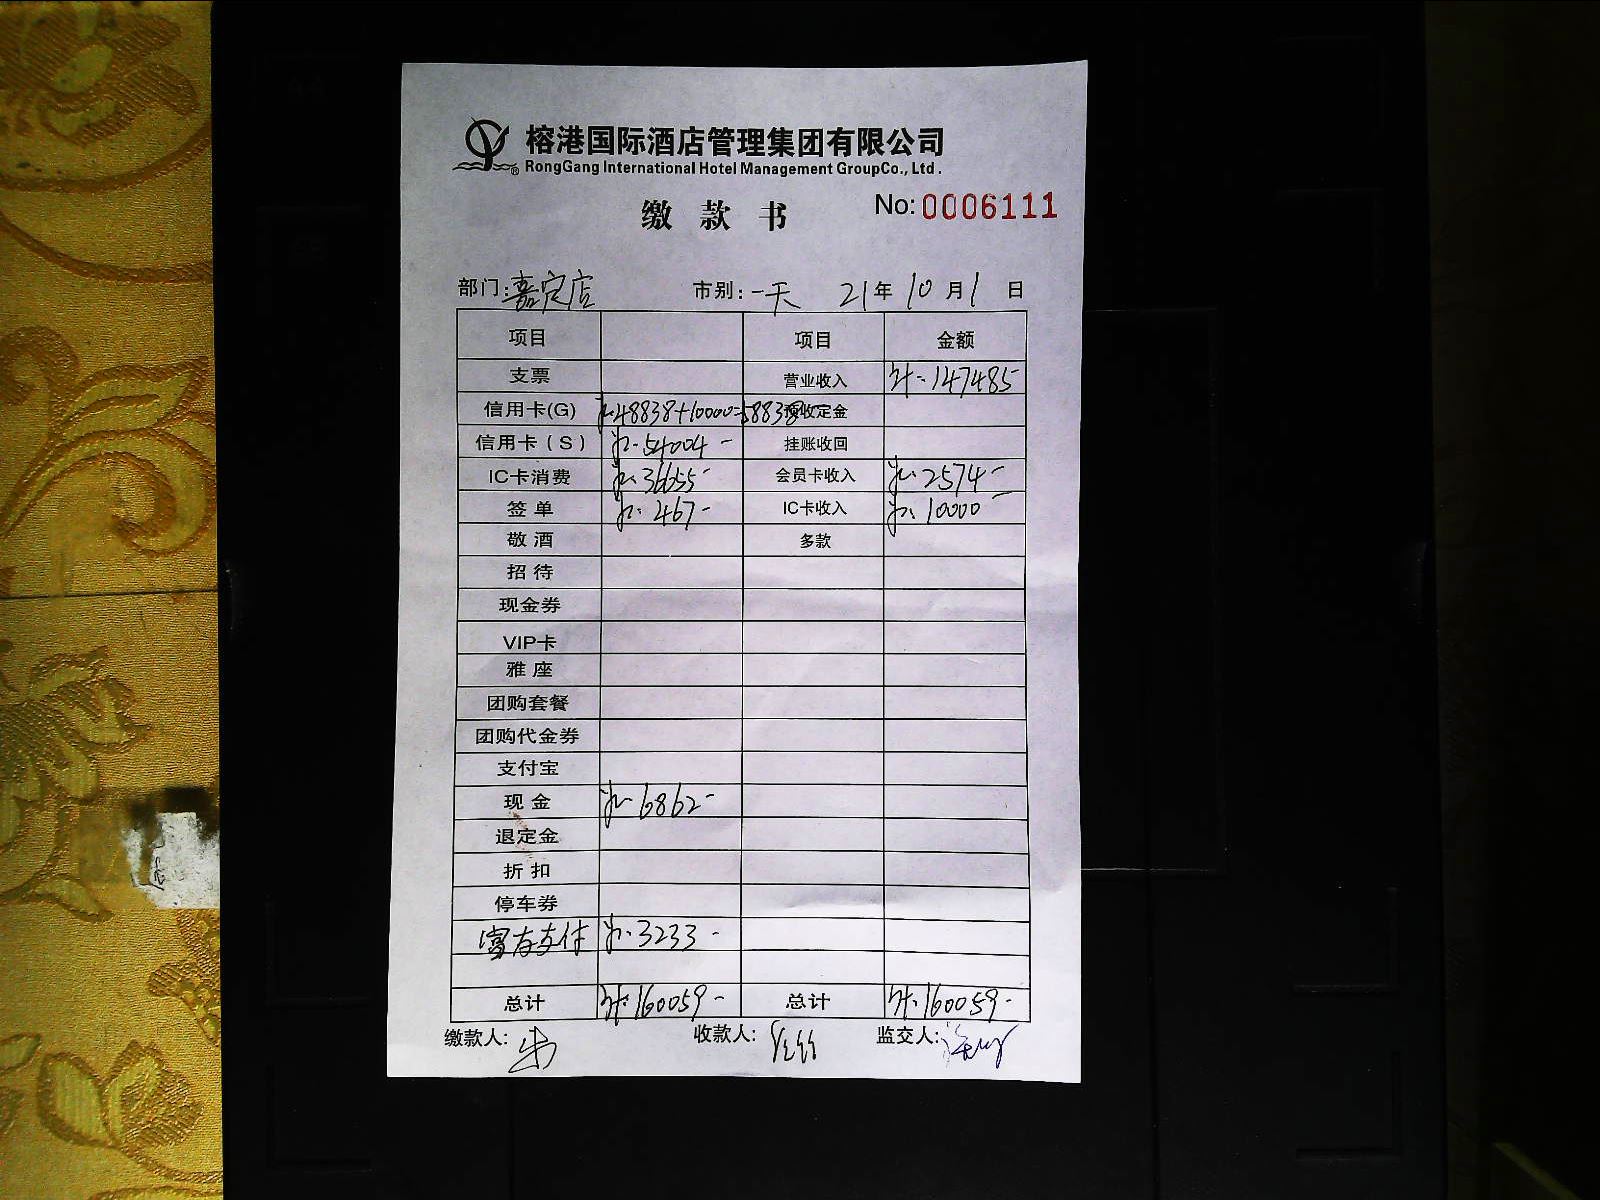 榕港国际酒店管理集团有限公司
® RongGang International Hotel Management GroupCo., Ltd.
缴款书 No: 0006111
部门: 嘉定店 市别: 一天 21年 10月 1日
项目 项目 金额
支票 营业收入 147485
信用卡(G) 48838+10000=58838 预收定金
信用卡(S) 54004- 挂账收回
IC卡消费 36655- 会员卡收入 2574-
签单 467- IC卡收入 10000-
敬酒 多款
招待
现金券
VIP卡
雅座
团购套餐
团购代金券
支付宝
现金 6862-
退定金
折扣
停车券
富友支付 3233-
总计 160059- 总计 160059-
缴款人: 收款人: 监交人: